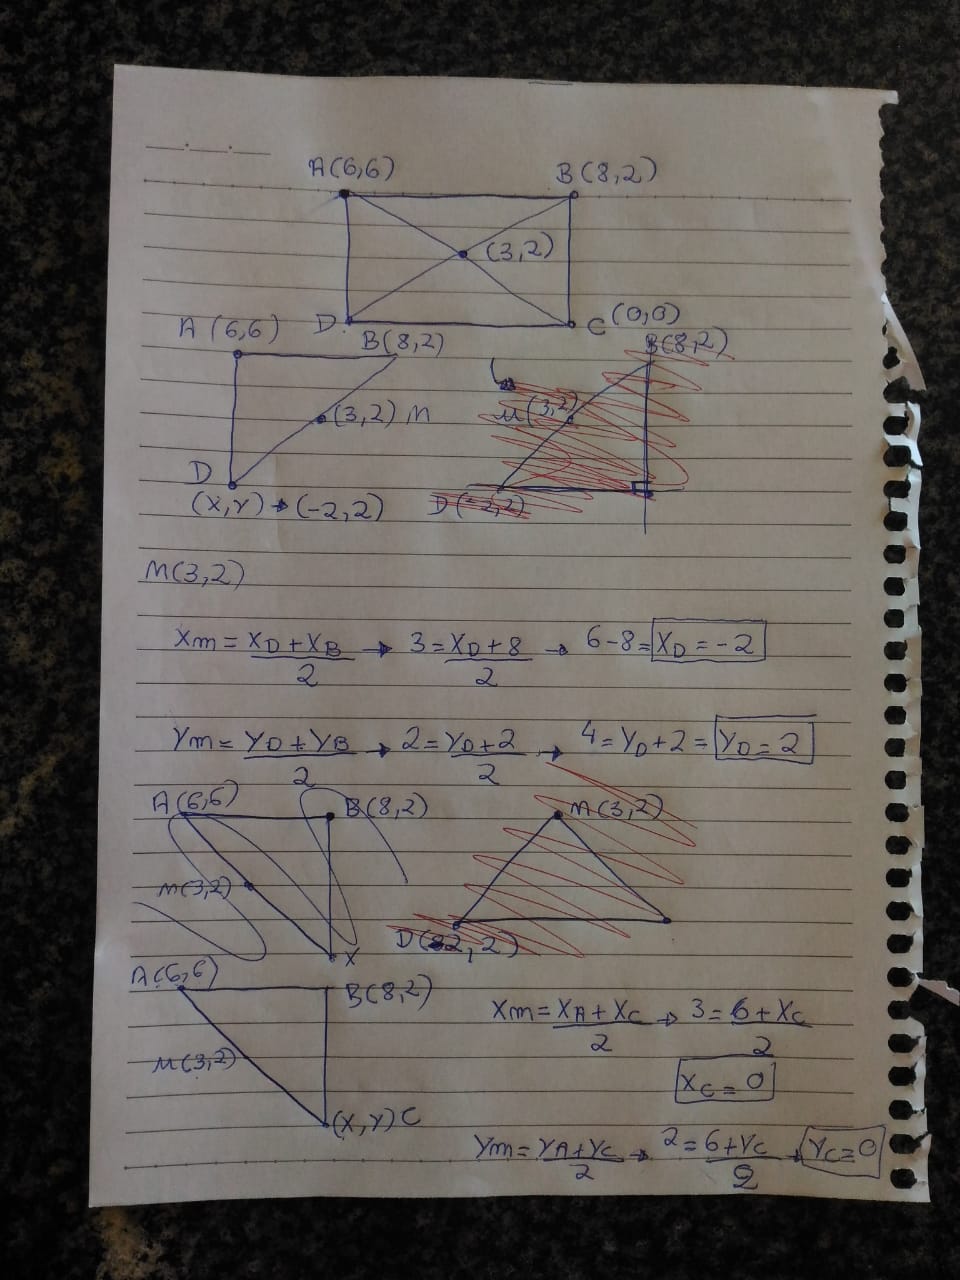 A(6,6) B(8,2)
(3,2)
D C (0,0)
A (6,6) B(8,2) B(8,2)
(3,2) M M(3,2)
D
(X,Y) → (-2,2) D(-2,2)
M(3,2)
Xm = XD + XB / 2 → 3 = XD + 8 / 2 → 6-8 = XD = -2
Ym = YD + YB / 2 → 2 = YD + 2 / 2 → 4 = YD + 2 = YD = 2
A(6,6) B(8,2) M(3,2)
M(3,2)
X D( 2, 2)
A(6,6) B(8,2)
M(3,2)
(X, Y) C
Xm = XA + XC / 2 → 3 = 6 + XC / 2
XC = 0
Ym = YA + YC / 2 → 2 = 6 + YC / 2 → YC = 0